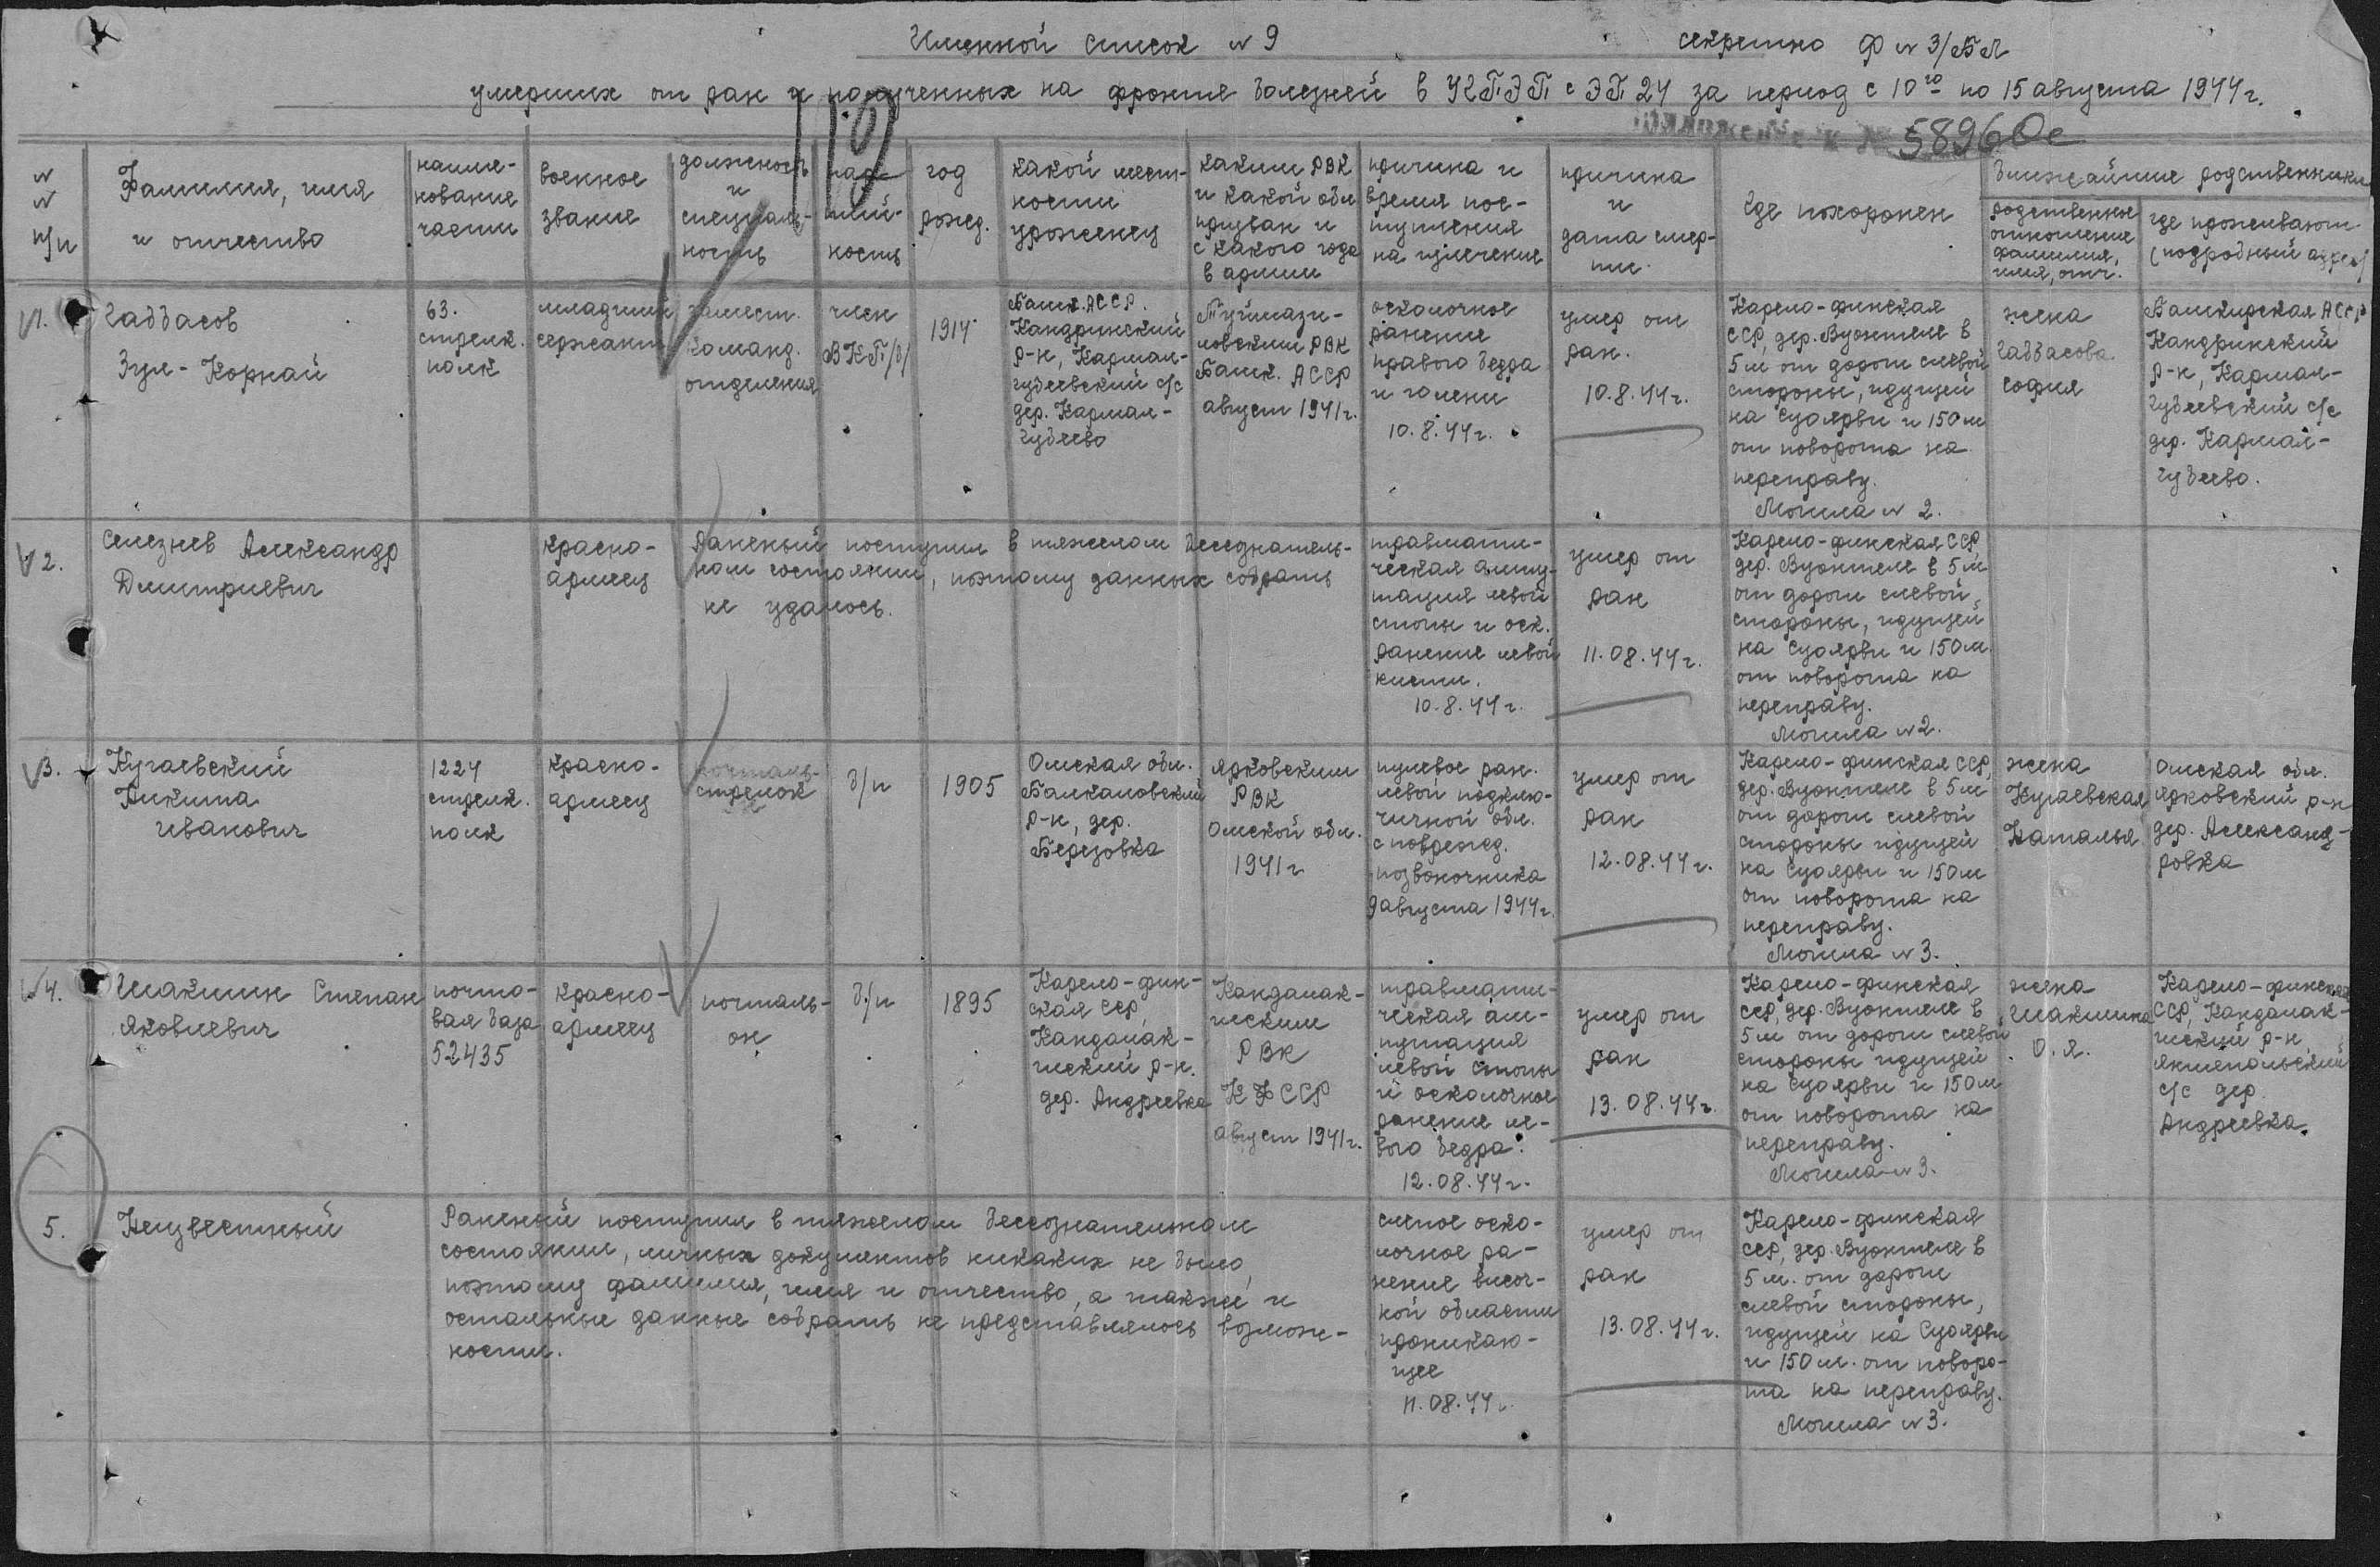 Именной список № 9
секретно Ф № 3/БЛ
умерших от ран и полученных на фронте болезней в УКПЭП с ЭП 24 за период с 10го по 15 августа 1944 г.
119
Приложение к № 58960с
№
№
п/п
Фамилия, имя
и отчество
наиме-
нование
части
военное
звание
должность
и
специаль-
ность
пар-
тий-
ность
год
рожд.
какой мест-
ности
уроженец
каким РВК
и какой обл
призван и
с какого года
в армии
причина и
время пос-
тупления
на излечение
причина
и
дата смер-
ти.
где похоронен
ближайшие родственники
родственное
отношение
фамилия,
имя, отч.
где проживают
(подробный адрес)
1.
Габбасов
Зул-Корнай
63.
стрелк.
полк
младший
сержант
замест.
команд.
отделения
член
ВКП/б/
1914
Башк. АССР.
Кандринский
р-н, Кармал-
губеевский с/с
дер. Кармал-
губеево
Туймази-
новским РВК
Башк. АССР
август 1941 г.
осколочное
ранение
правого бедра
и голени
10.8.44 г.
умер от
ран.
10.8.44 г.
Карело-финская
ССР, дер. Вуонтеле в
5 м от дороги слевой
стороны, идущей
на Суоярви и 150 м
от поворота на
переправу.
Могила № 2.
жена
Габбасова
София
Башкирская АССР
Кандринский
р-н, Кармал-
губеевский с/с
дер. Кармал-
губеево.
2.
Селезнев Александр
Дмитриевич
красно-
армеец
Раненый поступил в тяжелом бессознатель-
ном состоянии, поэтому данных собрать
не удалось.
травмати-
ческая ампу-
тация левой
стопы и оск.
ранение левой
кисти.
10.8.44 г.
умер от
ран
11.08.44 г.
Карело-финская ССР,
дер. Вуонтеле в 5 м
от дороги слевой
стороны, идущей
на Суоярви и 150 м
от поворота на
переправу.
Могила № 2.
3.
Кугаевский
Никита
Иванович
1224
стрелк.
полк
красно-
армеец
стрелок
б/п
1905
Омская обл.
Байкаловский
р-н, дер.
Березовка
Ярковским
РВК
Омской обл.
1941 г
пулевое ран.
левой подклю-
чичной обл.
с поврежд.
позвоночника
9 августа 1944 г.
умер от
ран
12.08.44 г.
Карело-финская ССР,
дер. Вуонтеле в 5 м
от дороги слевой
стороны идущей
на Суоярви и 150 м
от поворота на
переправу.
Могила № 3.
жена
Кугаевская
Наталья
Омская обл.
Ярковский р-н
дер. Александ-
ровка
4.
Шакшин Степан
Яковлевич
почто-
вая база
52435
красно-
армеец
почталь-
он
б/п
1895
Карело-фин-
ская ССР,
Кандалак-
шский р-н.
дер. Андреевка
Кандалак-
шским
РВК
КФССР
август 1941 г.
травмати-
ческая ам-
путация
левой стопы
и осколочное
ранение ле-
вого бедра.
12.08.44 г.
умер от
ран
13.08.44 г.
Карело-финская
ССР, дер. Вуонтеле в
5 м от дороги слевой
стороны идущей
на Суоярви и 150 м
от поворота на
переправу.
Могила № 3.
жена
Шакшина
О. Я.
Карело-финская
ССР, Кандалак-
шский р-н,
с/с дер.
Андреевка.
5.
Неизвестный
Раненый поступил в тяжелом бессознательном
состоянии, личных документов никаких не было,
поэтому фамилия, имя и отчество, а также и
остальные данные собрать не представлялось возмож-
ности.
слепое оско-
лочное ра-
нение височ-
ной области
проникаю-
щее
11.08.44 г.
умер от
ран
13.08.44 г.
Карело-финская
ССР, дер. Вуонтеле в
5 м. от дороги
слевой стороны,
идущей на Суоярви
и 150 м. от поворо-
та на переправу.
Могила № 3.